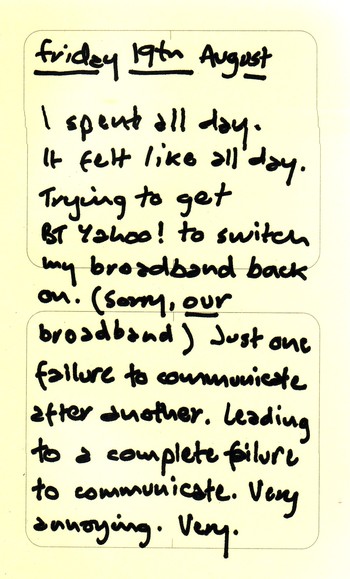 friday 19th August
I spent all day.
It felt like all day.
Trying to get
BT Yahoo! to switch
my broadband back
on. (Sorry, our
broadband) Just one
failure to communicate
after another. Leading
to a complete failure
to communicate. Very
annoying. Very.